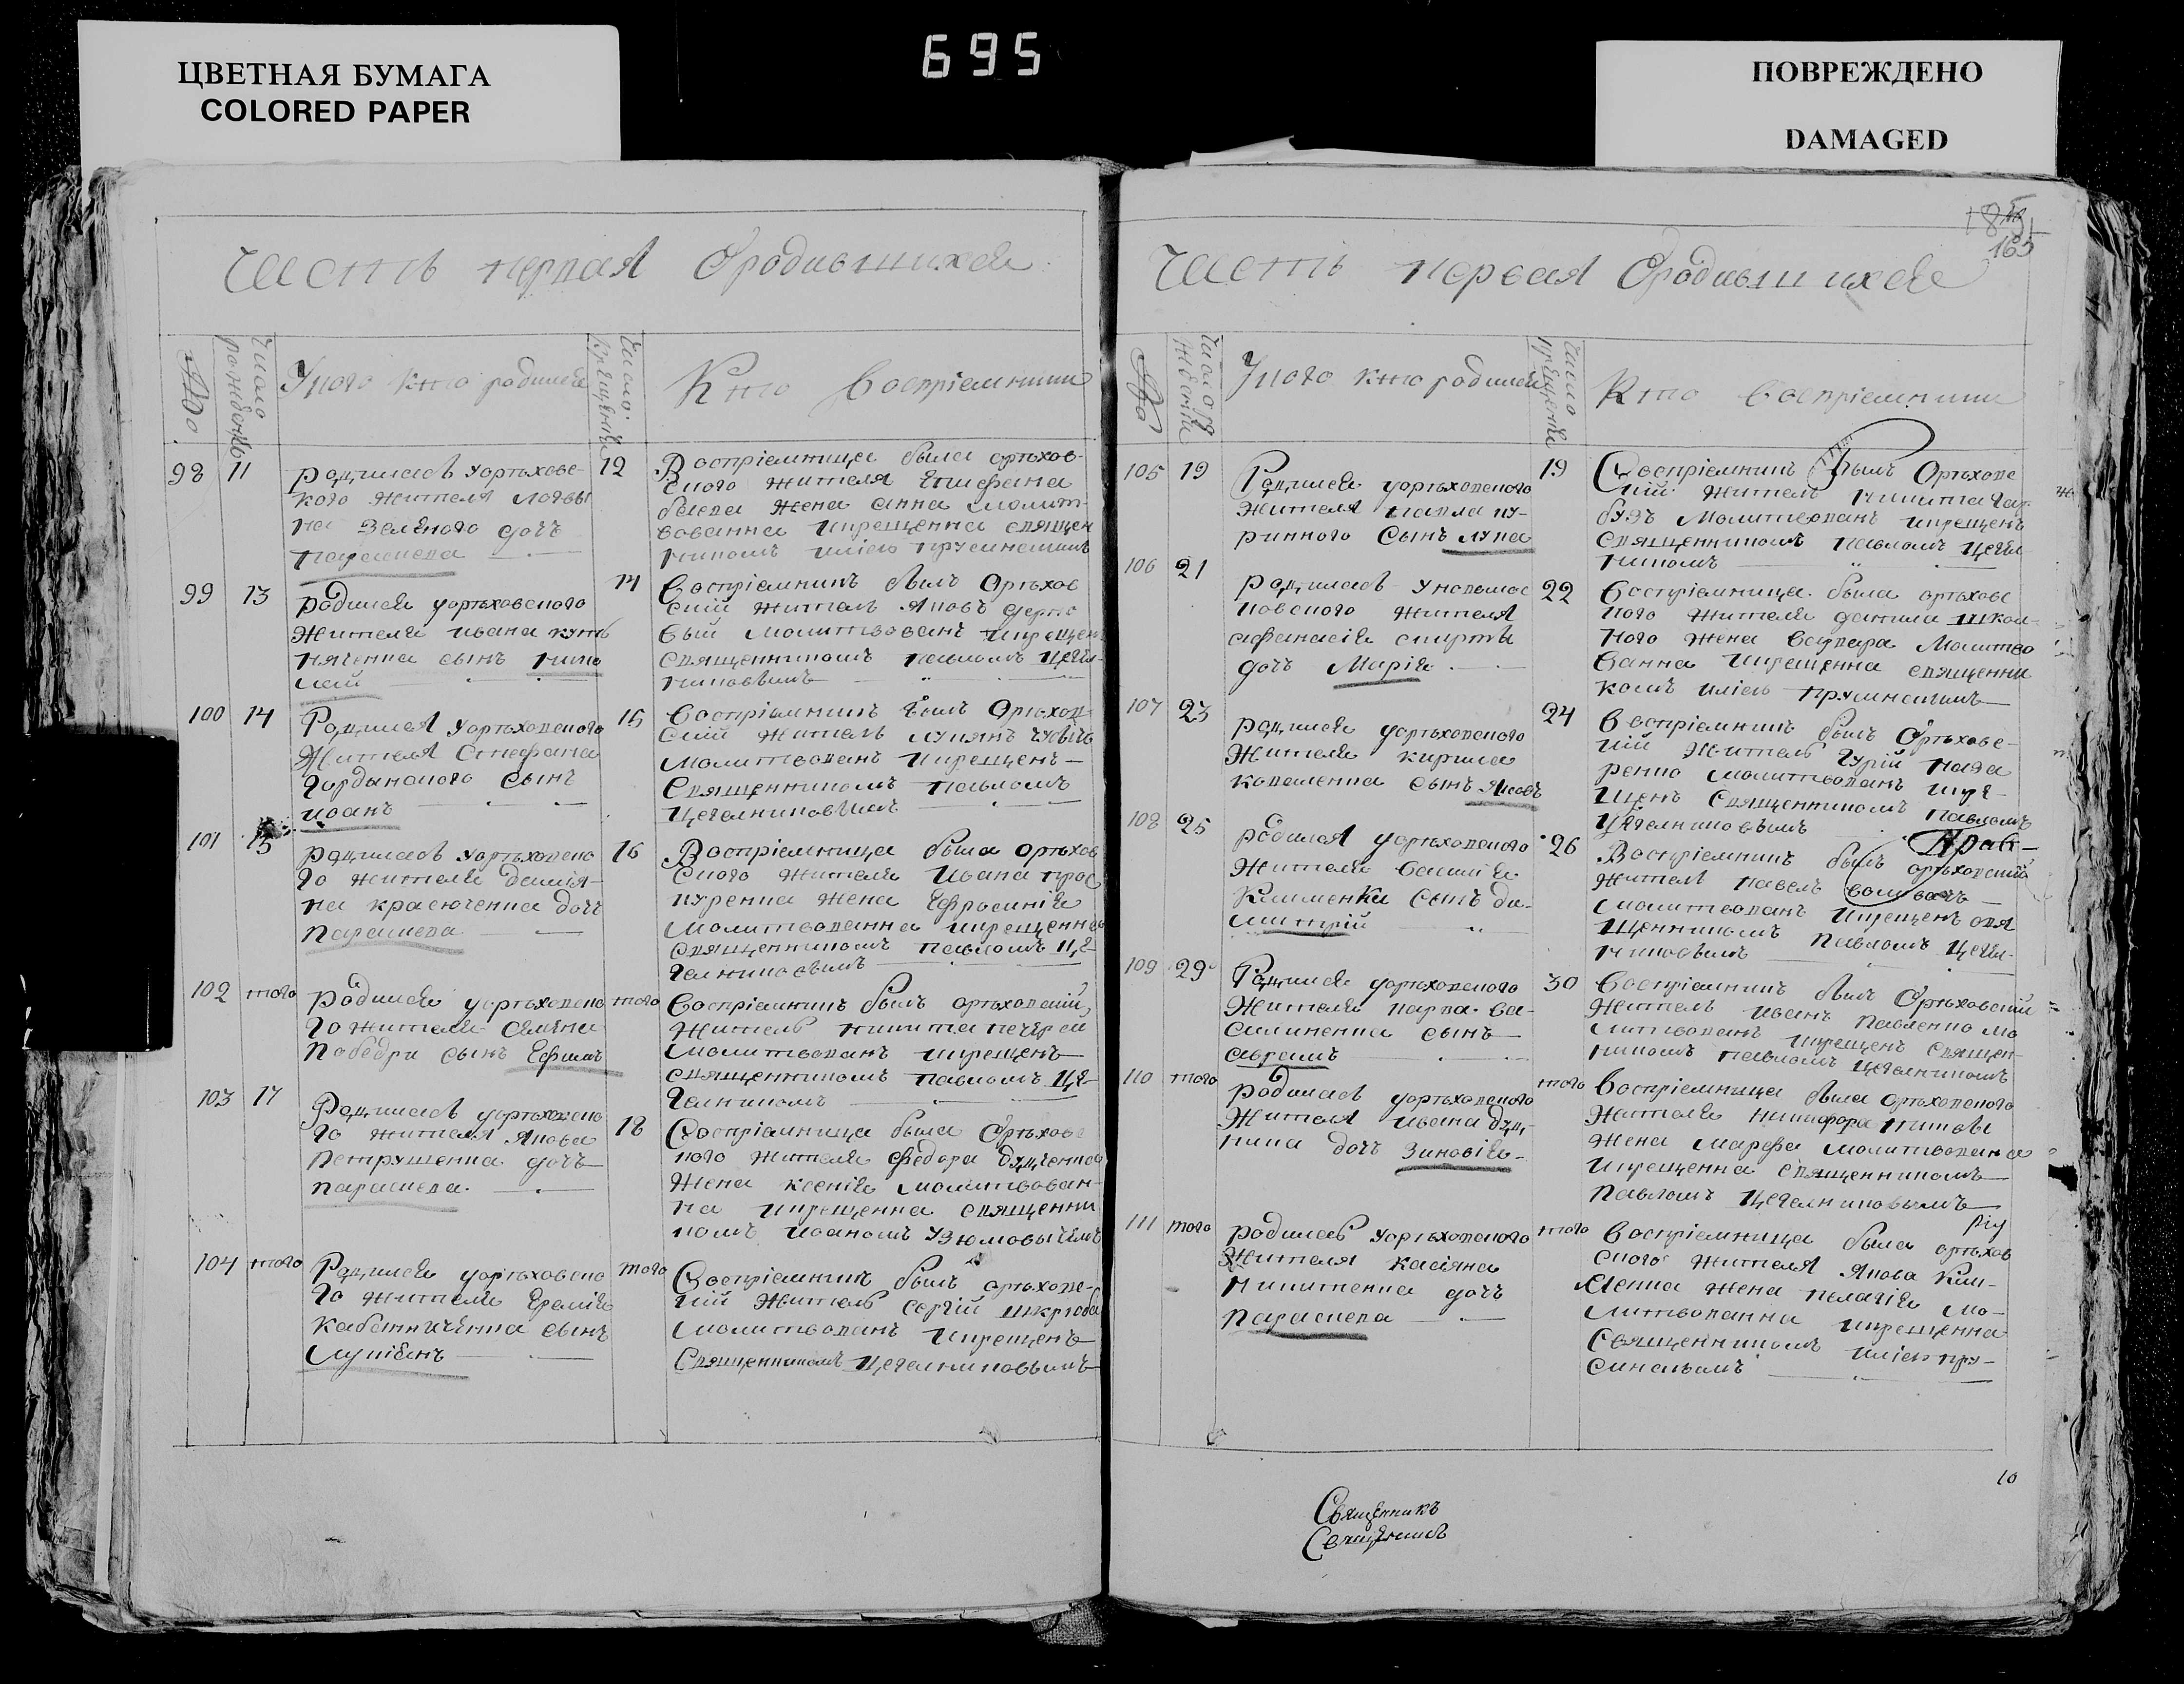 ЦВЕТНАЯ БУМАГА
COLORED PAPER
695
ПОВРЕЖДЕНО
DAMAGED
Часть первая Ородившихся
Число рожденія
У кого кто родился
Число крещенія
Кто Воспріемники
98 11
Родиласъ уорѣховс-
кого жителя
на Зелѣного дочъ
Параскева
12
Воспріемница была орѣхов-
ского жителя Епифана
жена анна молит-
вованна икрещенна священ
никомъ иліею прусиновимъ
99 13
Родился уорѣховского
жителя ивана
сынъ нико
лай
14
Воспріемникъ былъ Орѣхов
скій житель яковъ
вый молитвованъ икрещен
священникомъ павломъ цегел-
никовымъ
100 14
Родился уорѣховского
Жителя Стефана
Гордынского Сынъ
иоанъ
15
Воспріемникъ былъ Орѣхов
скій житель лукянъ
молитвованъ икрещенъ
Священникомъ павломъ
Цегелниковымъ
101 15
Родиласъ уорѣховско
го жителя даміа-
на красюченка дочъ
параскева
16
Воспріемница была орѣхов
ского жителя ивана прос
куренка жена Ефросинія
молитвованна икрещенна
священникомъ павломъ це-
гелниковымъ
102 того
Родился уорѣховско
го жителя семена
победри сынъ Ефимъ
того
Воспріемникъ былъ орѣховскій
житель никита
молитвованъ икрещенъ
священникомъ павломъ це-
гелникомъ
103 17
Родиласъ уорѣховско
го жителя Якова
Петрушенка дочъ
параскева
18
Воспріемница была Орѣховс
кого жителя федора дудченка
жена ксенія молитвован-
на икрещенна священни
комъ иоаномъ
104 того
Родился уорѣховско
го жителя Еремія
сынъ
лукіянъ
того
Воспріемникъ былъ орѣховс-
кій житель сергій шкрюба
молитвованъ икрещенъ
Священникомъ цегелниковымъ
185
Часть первая Ородившихся
У кого кто родился
Число крещенія
Кто воспріемники
105 19
Родился уорѣховского
жителя павла ку-
ринного Сынъ лука
19
Воспріемникъ былъ Орѣховс
кій житель никита гар
бузъ молитвованъ икрещенъ
священникомъ павломъ цегел
никомъ
106 21
Родиласъ
повского жителя
афанасія спирты
дочъ Марія
22
Воспріемница была орѣховс
кого жителя
ного жена варвара молитво
ванна икрещенна священни
комъ иліею прусиновимъ
107 23
Родился уорѣховского
жителя кирила
коваленка сынъ Яковъ
24
Воспріемникъ былъ Орѣховс-
кій житель Гурій наза
ренко молитвованъ икре-
щенъ священникомъ павломъ
Цегелниковымъ
108 25
Родился уорѣховского
жителя василія
Клименка Сынъ ди-
митрій
26
Воспріемникъ былъ орѣховский
житель павелъ
молитвованъ икрещенъ свя
щенникомъ павломъ цегел-
никовымъ
109 29
Родился уорѣховского
жителя карпа ва-
силиненка сынъ
аврамъ
30
Воспріемникъ былъ Орѣховскій
житель иванъ павленко мо
литвованъ икрещенъ священ-
никомъ павломъ цегелникомъ
110 того
Родиласъ уорѣховского
жителя ивана дуд-
ника дочъ Зиновія
того
Воспріемница была орѣховского
жителя никифора
жена марфа молитвована
икрещенна священникомъ
павломъ цегелниковымъ
111 того
Родиласъ уорѣховского
жителя касіяна
никитенка дочъ
параскева
того
Воспріемница была орѣхов
ского жителя якова
жена пелагія мо-
литвованна икрещенна
Священникомъ иліею пру-
синовымъ
10
Священникъ
Священникъ